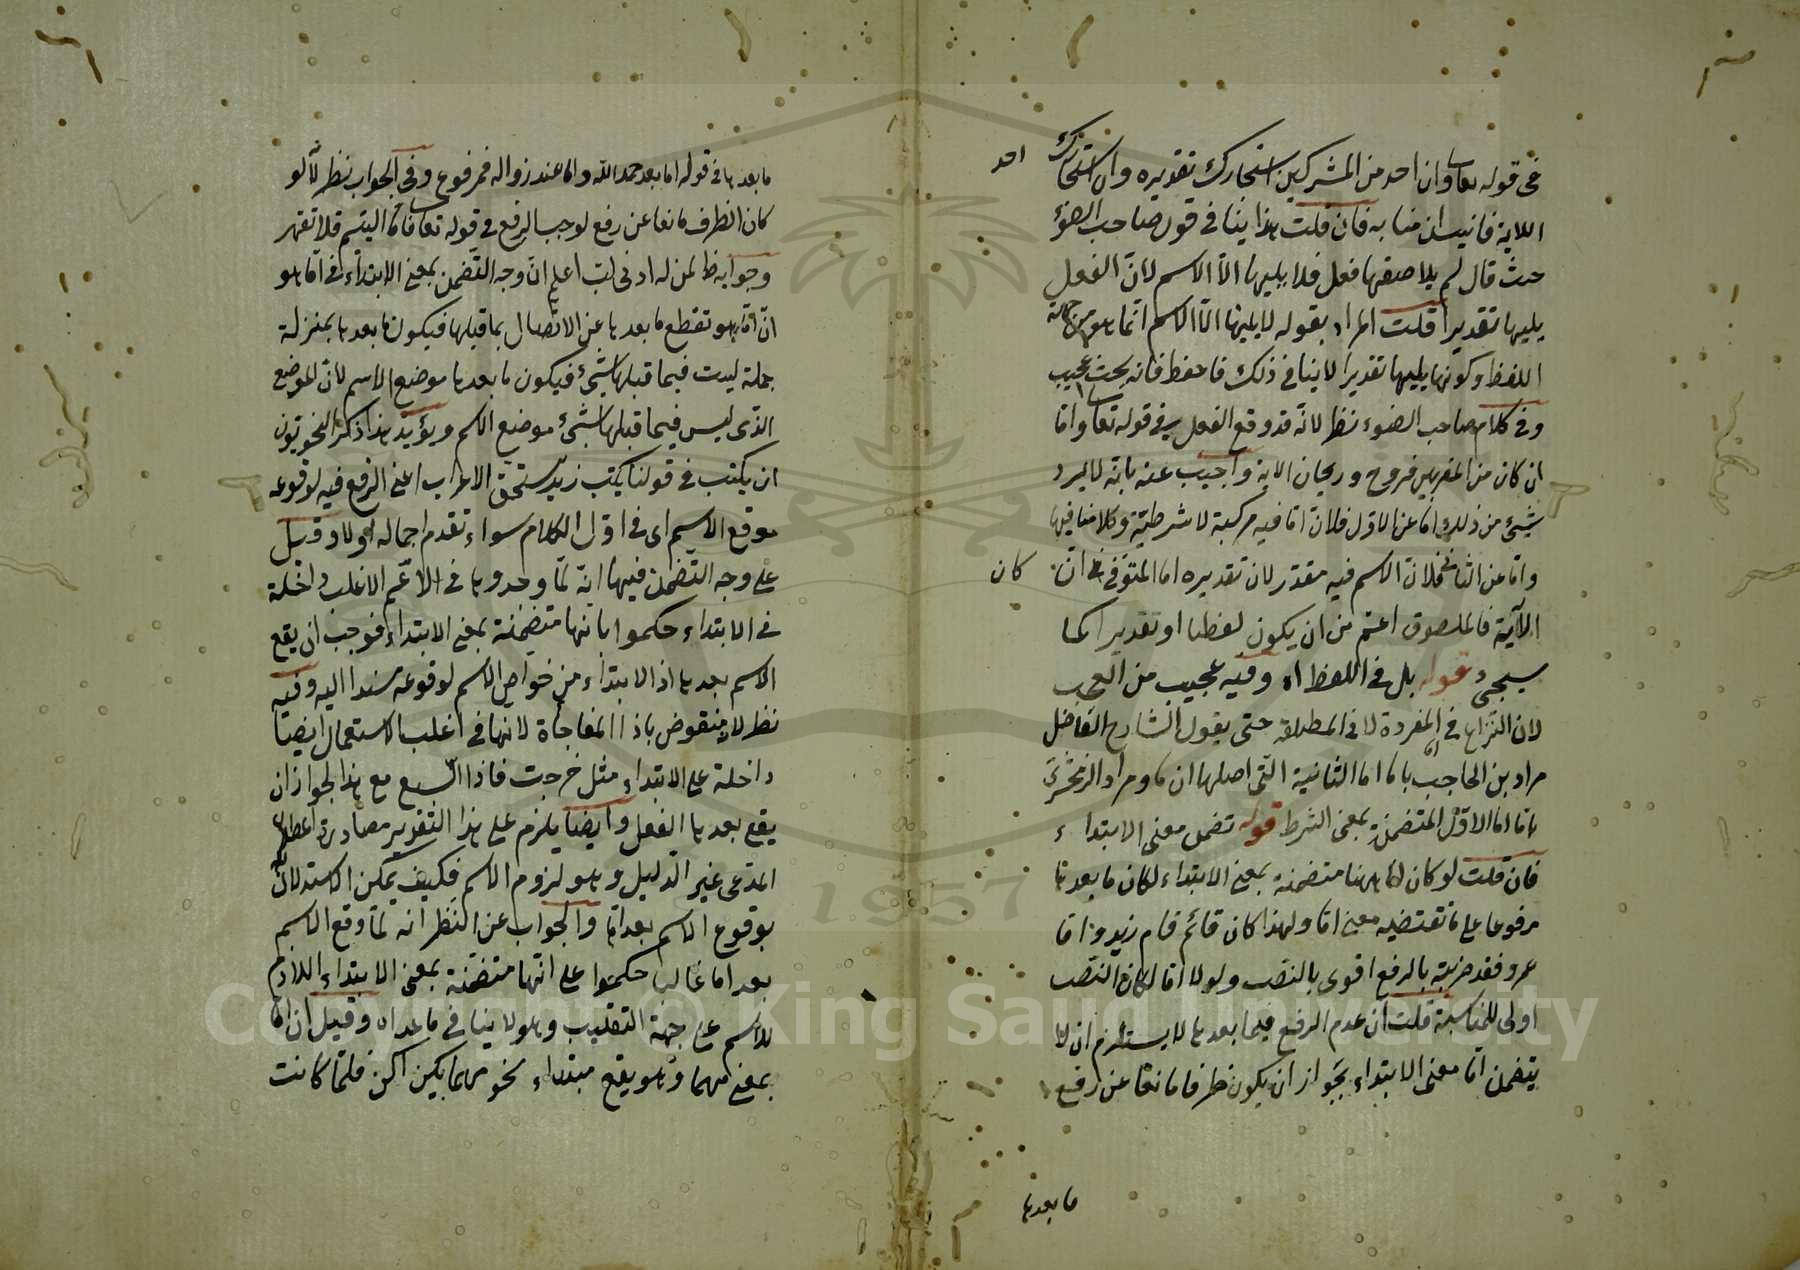 في قوله تعا وان احد من المشركين استجارك تقديره وان استجارك
احد
اللاية فانيب ان مناب به فان قلت هذا ينافي قول صاحب الضوء
حيث قال لم يلاصقها فعل فلا يليها الا الاسم لان الفعل
يليها تقديرا قلت المراد بقوله لا يليها الا الاسم انما هو من جهة
اللفظ وكونها يليها تقديرا لا ينافي ذلك فاحفظ فانه بحث عجيب
وفي كلام صاحب الضوء نظر لانه قد وقع الفعل في قوله تعا واما
ان كان من المقربين فروح وريحان الاية واجيب عنه بانه لا يرد
شيئ من ذلك اما عن الاول فلان اما فيه مركبة لا شرطية وكلامنا فيها
واما عن الثاني فلان الاسم فيه مقدر لان تقديره اما المتوفى ان
كان
الآية فالملصوق اعم من ان يكون لفظا او تقديرا كما
سيجئ قوله بل في اللفظ اه وفيه عجيب من العجب
لان النزاع في المفردة لا في المطلقة حتى يقول الشارح الفاضل
مراد بن الحاجب باما اما الثانية التي اصلها ان ما ومراد الزمخشري
باما اما الاول المتضمنة بمعنى الشرط قوله تضمن معنى الابتداء
فان قلت لو كان اما ههنا متضمنة بمعنى الابتداء لكان ما بعدها
مرفوعا على ما تقتضيه معنى اما ولهذا كان قائم قام زيد واما
عمرو فقد ضربته بالرفع اقوى بالنصب ولولا اما لكان النصب
اولى للمناسبة قلت ان عدم الرفع فيما بعدها لا يستلزم ان لا
يتضمن اما معنى الابتداء بجواز ان يكون ظرفا مانعا عن رفع
ما بعدها
ما بعدها في قوله اما بعد حمد الله واما عند زواله فمرفوع وفي الجواب نظر لانه لو
كان الظرف مانعا عن رفع لوجب الرفع في قوله تعا فاما اليتيم فلا تقهر
وجوابه ظ لمن له ادنى لب اعلم ان وجه التضمن بمعنى الابتداء في اما هو
ان اما هو تقطع ما بعدها عن الاتصال بما قبلها فيكون ما بعدها بمنزلة
جملة ليست فيما قبلها شيئ فيكون ما بعدها موضع الاسم لان الموضع
الذي ليس فيما قبلها شيئ موضع الاسم ويؤيد هذا ذكر النحويون
ان يكتب في قولنا يكتب زيد يستحق الاعراب اعني الرفع فيه لوقوعه
موقع الاسم اى في اول الكلام سواء تقدم اجماله اولا وقيل
على وجه التضمن فيها انه لما وجدوها في الاعم الاغلب داخلة
في الابتداء حكموا بانها متضمنة بمعنى الابتداء فوجب ان يقع
الاسم بعدها اذ الابتداء من خواص الاسم لوقوعه مسندا اليه وفيه
نظر لانه منقوض باذا المفاجاة لانها في اغلب الاستعمال ايضا
داخلة على الابتداء مثل خرجت فاذا السبع مع هذا لجواز ان
يقع بعدها الفعل وايضا يلزم على هذا التقرير مصادرة المطلوب
المدعى غير الدليل وهو لزوم الاسم فكيف يمكن الاستدلال
بوقوع الاسم بعدها والجواب عن النظر انه لما وقع الاسم
بعد اما غالبا حكموا على انها متضمنة بمعنى الابتداء اللازم
للاسم على جهة التغليب وهو لا ينافي ما عداه وقيل ان اما
بمعنى مهما وهو يقع مبتداء نحو مهما يكن اكن فلما كانت